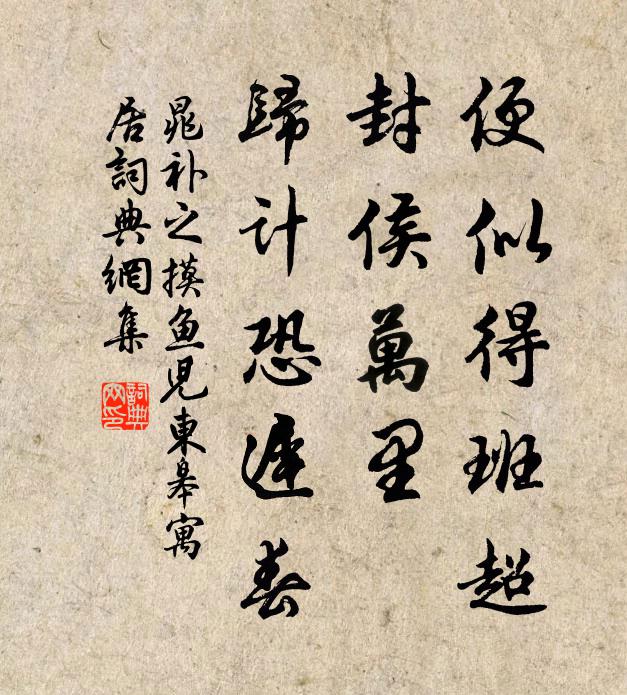 便似得班超
封侯萬里
歸計恐遲春
晁补之摸鱼児東皋寓
居詞典網集
詞典網印